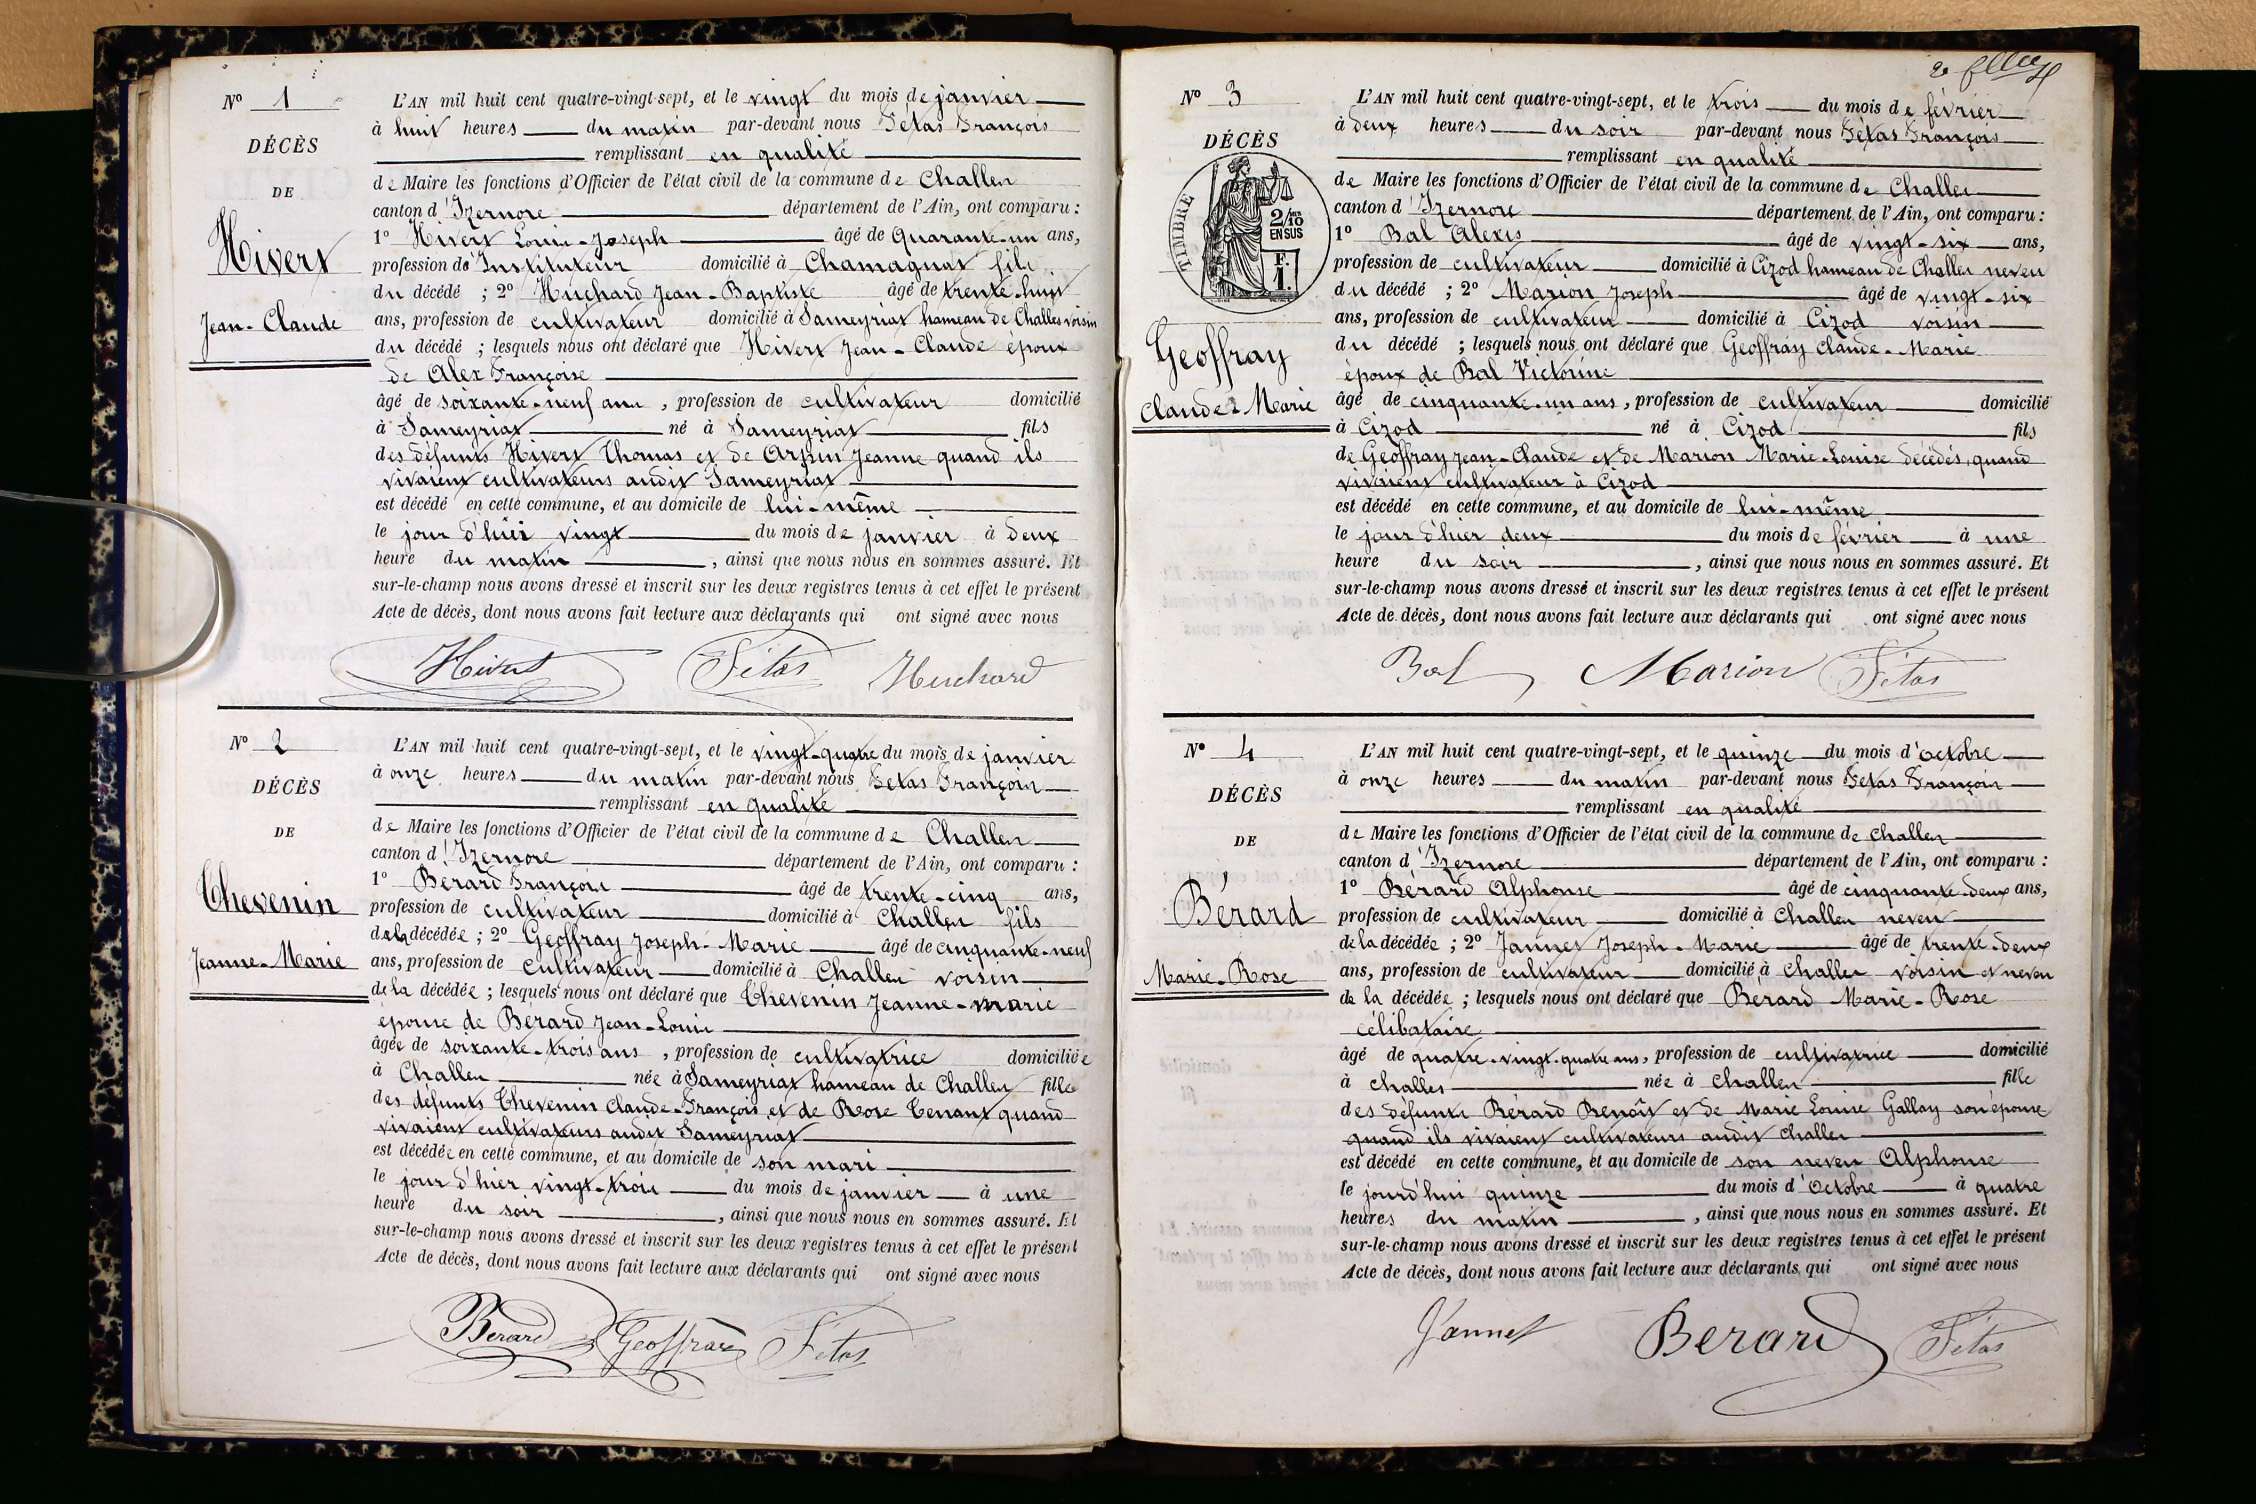 N° 1
DÉCÈS
DE
Hivert
Jean-Claude
L'AN mil huit cent quatre-vingt-sept, et le vingt du mois de janvier
à huit heures du matin par-devant nous Fétas François
remplissant en qualité
de Maire les fonctions d'Officier de l'état civil de la commune de Challes
canton d'Izernore département de l'Ain, ont comparu :
1° Hivert Louis-Joseph âgé de Quarante-un ans,
profession de Instituteur domicilié à Chamagnat fils
du décédé ; 2° Huchard Jean-Baptiste âgé de trente-huit
ans, profession de cultivateur domicilié à Sameyriat hameau de Challes voisin
du décédé ; lesquels nous ont déclaré que Hivert Jean-Claude époux
de Alex Françoise
âgé de soixante-neuf ans, profession de cultivateur domicilié
à Sameyriat né à Sameyriat fils
des défunts Hivert Thomas et de Arpin Jeanne quand ils
vivaient cultivateurs audit Sameyriat
est décédé en cette commune, et au domicile de lui-même
le jour d'hui vingt du mois de janvier à deux
heure du matin, ainsi que nous nous en sommes assuré. Et
sur-le-champ nous avons dressé et inscrit sur les deux registres tenus à cet effet le présent
Acte de décès, dont nous avons fait lecture aux déclarants qui ont signé avec nous
Hivert Fétas Huchard
N° 2
DÉCÈS
DE
Thevenin
Jeanne-Marie
L'AN mil huit cent quatre-vingt-sept, et le vingt-quatre du mois de janvier
à onze heures du matin par-devant nous Fetas François
remplissant en qualité
de Maire les fonctions d'Officier de l'état civil de la commune de Challes
canton d'Izernore département de l'Ain, ont comparu :
1° Berard François âgé de trente-cinq ans,
profession de cultivateur domicilié à Challes fils
de la décédée ; 2° Geoffray Joseph-Marie âgé de cinquante-neuf
ans, profession de cultivateur domicilié à Challes voisin
de la décédée ; lesquels nous ont déclaré que Thevenin Jeanne-marie
épouse de Berard Jean-Louis
âgée de soixante-trois ans, profession de cultivatrice domiciliée
à Challes née à Sameyriat hameau de Challes fille
des défunts Thevenin Claude-François et de Rose Tenant quand
vivaient cultivateurs audit Sameyriat
est décédée en cette commune, et au domicile de son mari
le jour d'hier vingt-trois du mois de janvier à une
heure du soir, ainsi que nous nous en sommes assuré. Et
sur-le-champ nous avons dressé et inscrit sur les deux registres tenus à cet effet le présent
Acte de décès, dont nous avons fait lecture aux déclarants qui ont signé avec nous
Berard Geoffray Fétas
N° 3
DÉCÈS
TIMBRE
2/10 EN SUS
F. 1.
Geoffray
Claude-Marie
L'AN mil huit cent quatre-vingt-sept, et le trois du mois de février
à deux heures du soir par-devant nous Fétas François
remplissant en qualité
de Maire les fonctions d'Officier de l'état civil de la commune de Challes
canton d'Izernore département de l'Ain, ont comparu :
1° Bal Alexis âgé de vingt-six ans,
profession de cultivateur domicilié à Cizod hameau de Challes neveu
du décédé ; 2° Marion Joseph âgé de vingt-six
ans, profession de cultivateur domicilié à Cizod voisin
du décédé ; lesquels nous ont déclaré que Geoffray Claude-Marie
époux de Bal Victorine
âgé de cinquante-un ans, profession de cultivateur domicilié
à Cizod né à Cizod fils
de Geoffray Jean-Claude et de Marion Marie-Louise décédés, quand
vivaient cultivateur à Cizod
est décédé en cette commune, et au domicile de lui-même
le jour d'hier deux du mois de février à une
heure du soir, ainsi que nous nous en sommes assuré. Et
sur-le-champ nous avons dressé et inscrit sur les deux registres tenus à cet effet le présent
Acte de décès, dont nous avons fait lecture aux déclarants qui ont signé avec nous
Bal Marion Fétas
N° 4
DÉCÈS
DE
Bérard
Marie-Rose
L'AN mil huit cent quatre-vingt-sept, et le quinze du mois d'octobre
à onze heures du matin par-devant nous Fetas François
remplissant en qualité
de Maire les fonctions d'Officier de l'état civil de la commune de Challes
canton d'Izernore département de l'Ain, ont comparu :
1° Bérard Alphonse âgé de cinquante-deux ans,
profession de cultivateur domicilié à Challes neveu
de la décédée ; 2° Jannet Joseph-Marie âgé de trente-deux
ans, profession de cultivateur domicilié à Challes voisin et neveu
de la décédée ; lesquels nous ont déclaré que Bérard Marie-Rose
célibataire
âgé de quatre-vingt-quatre ans, profession de cultivatrice domicilié
à Challes née à Challes fille
des défunts Bérard Benoît et de Marie Louise Gallay son épouse
quand ils vivaient cultivateurs audit Challes
est décédé en cette commune, et au domicile de son neveu Alphonse
le jourd'hui quinze du mois d'Octobre à quatre
heures du matin, ainsi que nous nous en sommes assuré. Et
sur-le-champ nous avons dressé et inscrit sur les deux registres tenus à cet effet le présent
Acte de décès, dont nous avons fait lecture aux déclarants qui ont signé avec nous
Jannet Berard Fétas